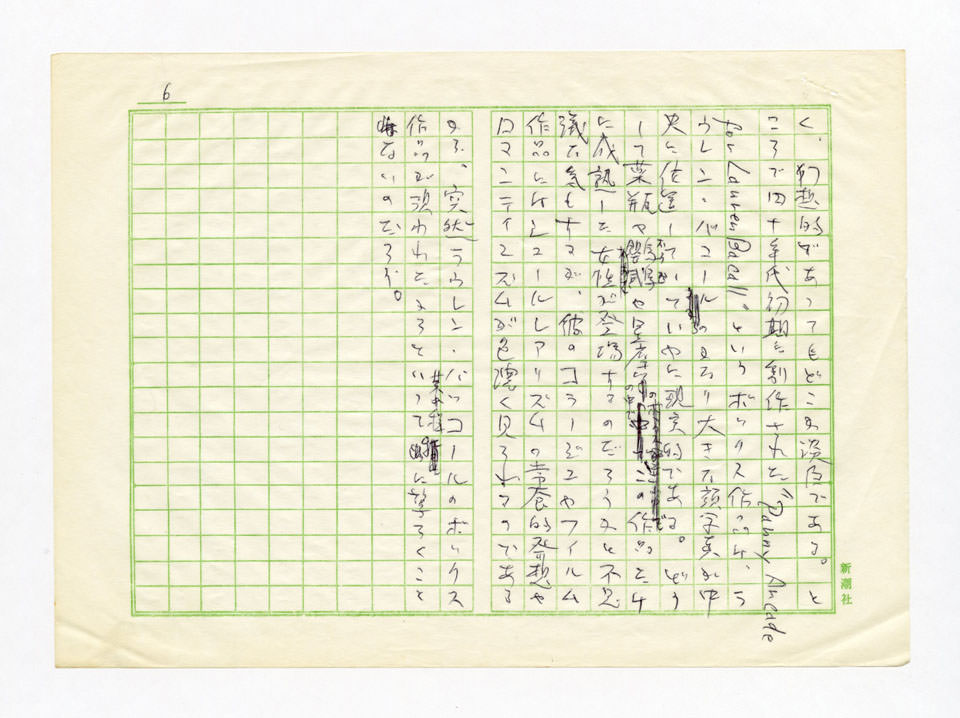 6
く、幻想的であってもどこか没個性である。と
ころで四十年代初期に創作された"Penny Arcade
for Lauren Bacall"というボックス作品は、ラ
ウレン・バコールのかなり大きな顔写真が中
央に位置していていやに現実的である。どう
して薬瓶や
この作品だけ
に成熟した女性が登場するのだろうかと不思
議な気もするが、彼のコラージュやフィルム
作品にはシュールレアリズムの常套的発想や
ロマンティシズムが色濃く見られるのである
から、突然ラウレン・バッコールのボックス
作品が現われたからといって
に驚ろくこと
はないのだろう。
新潮社